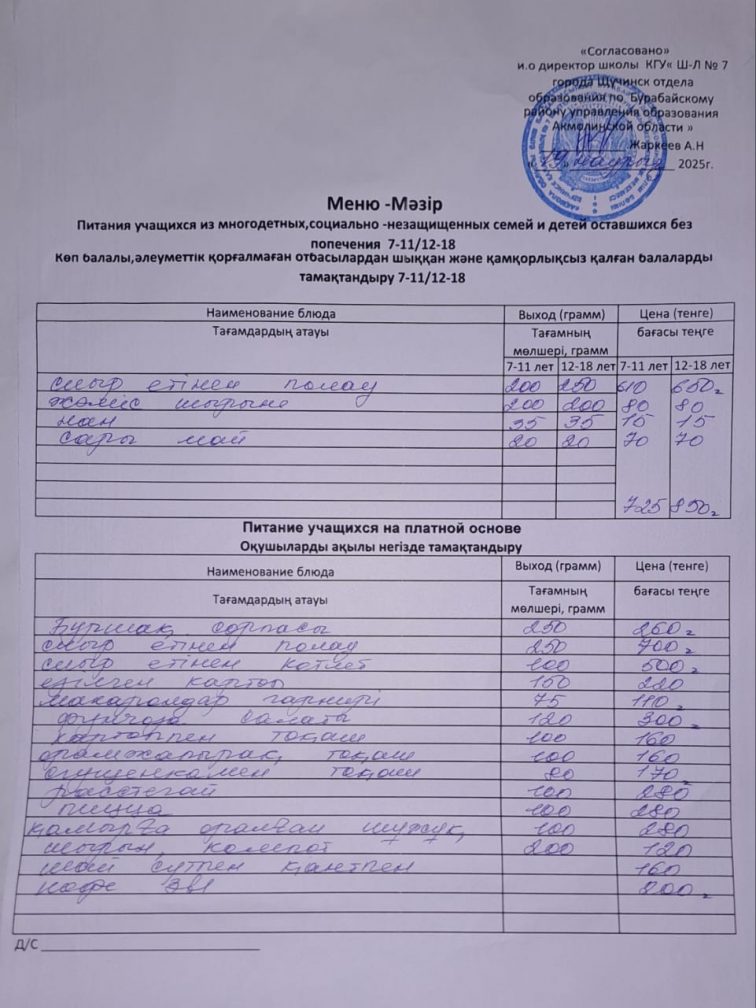 «Согласовано»
и.о директор школы КГУ« Ш-Л № 7
города Щучинск отдела
образования по Бурабайскому
району управления образования
Акмолинской области »
Жаркеев А.Н
«19» наурыз 2025г.
Меню -Мәзір
Питания учащихся из многодетных,социально -незащищенных семей и детей оставшихся без
попечения 7-11/12-18
Көп балалы,әлеуметтік қорғалмаған отбасылардан шыққан және қамқорлықсыз қалған балаларды
тамақтандыру 7-11/12-18
Наименование блюда Выход (грамм) Цена (тенге)
Тағамдардың атауы Тағамның мөлшері, грамм бағасы теңге
7-11 лет 12-18 лет 7-11 лет 12-18 лет
сиыр етінен полау 200 250 610 650
жеміс шырыны 200 200 80 80
нан 35 35 15 15
сары май 20 20 70 70
725 850
Питание учащихся на платной основе
Оқушыларды ақылы негізде тамақтандыру
Наименование блюда Выход (грамм) Цена (тенге)
Тағамдардың атауы Тағамның мөлшері, грамм бағасы теңге
Бұршақ сорпасы 250 260
сиыр етінен полау 250 700
сиыр етінен котлет 100 500
езілген картоп 150 220
макарондар гарнирі 75 110
фунчоза салаты 120 300
картоппен тоқаш 100 160
орамжапырақ тоқаш 100 160
сгущенкамен тоқаш 80 170
расстегай 100 280
пицца 100 280
қамырға оралған шұжық 100 280
шырын, компот 200 120
шай сүтпен қантпен 160
кофе 3в1 200
Д/С